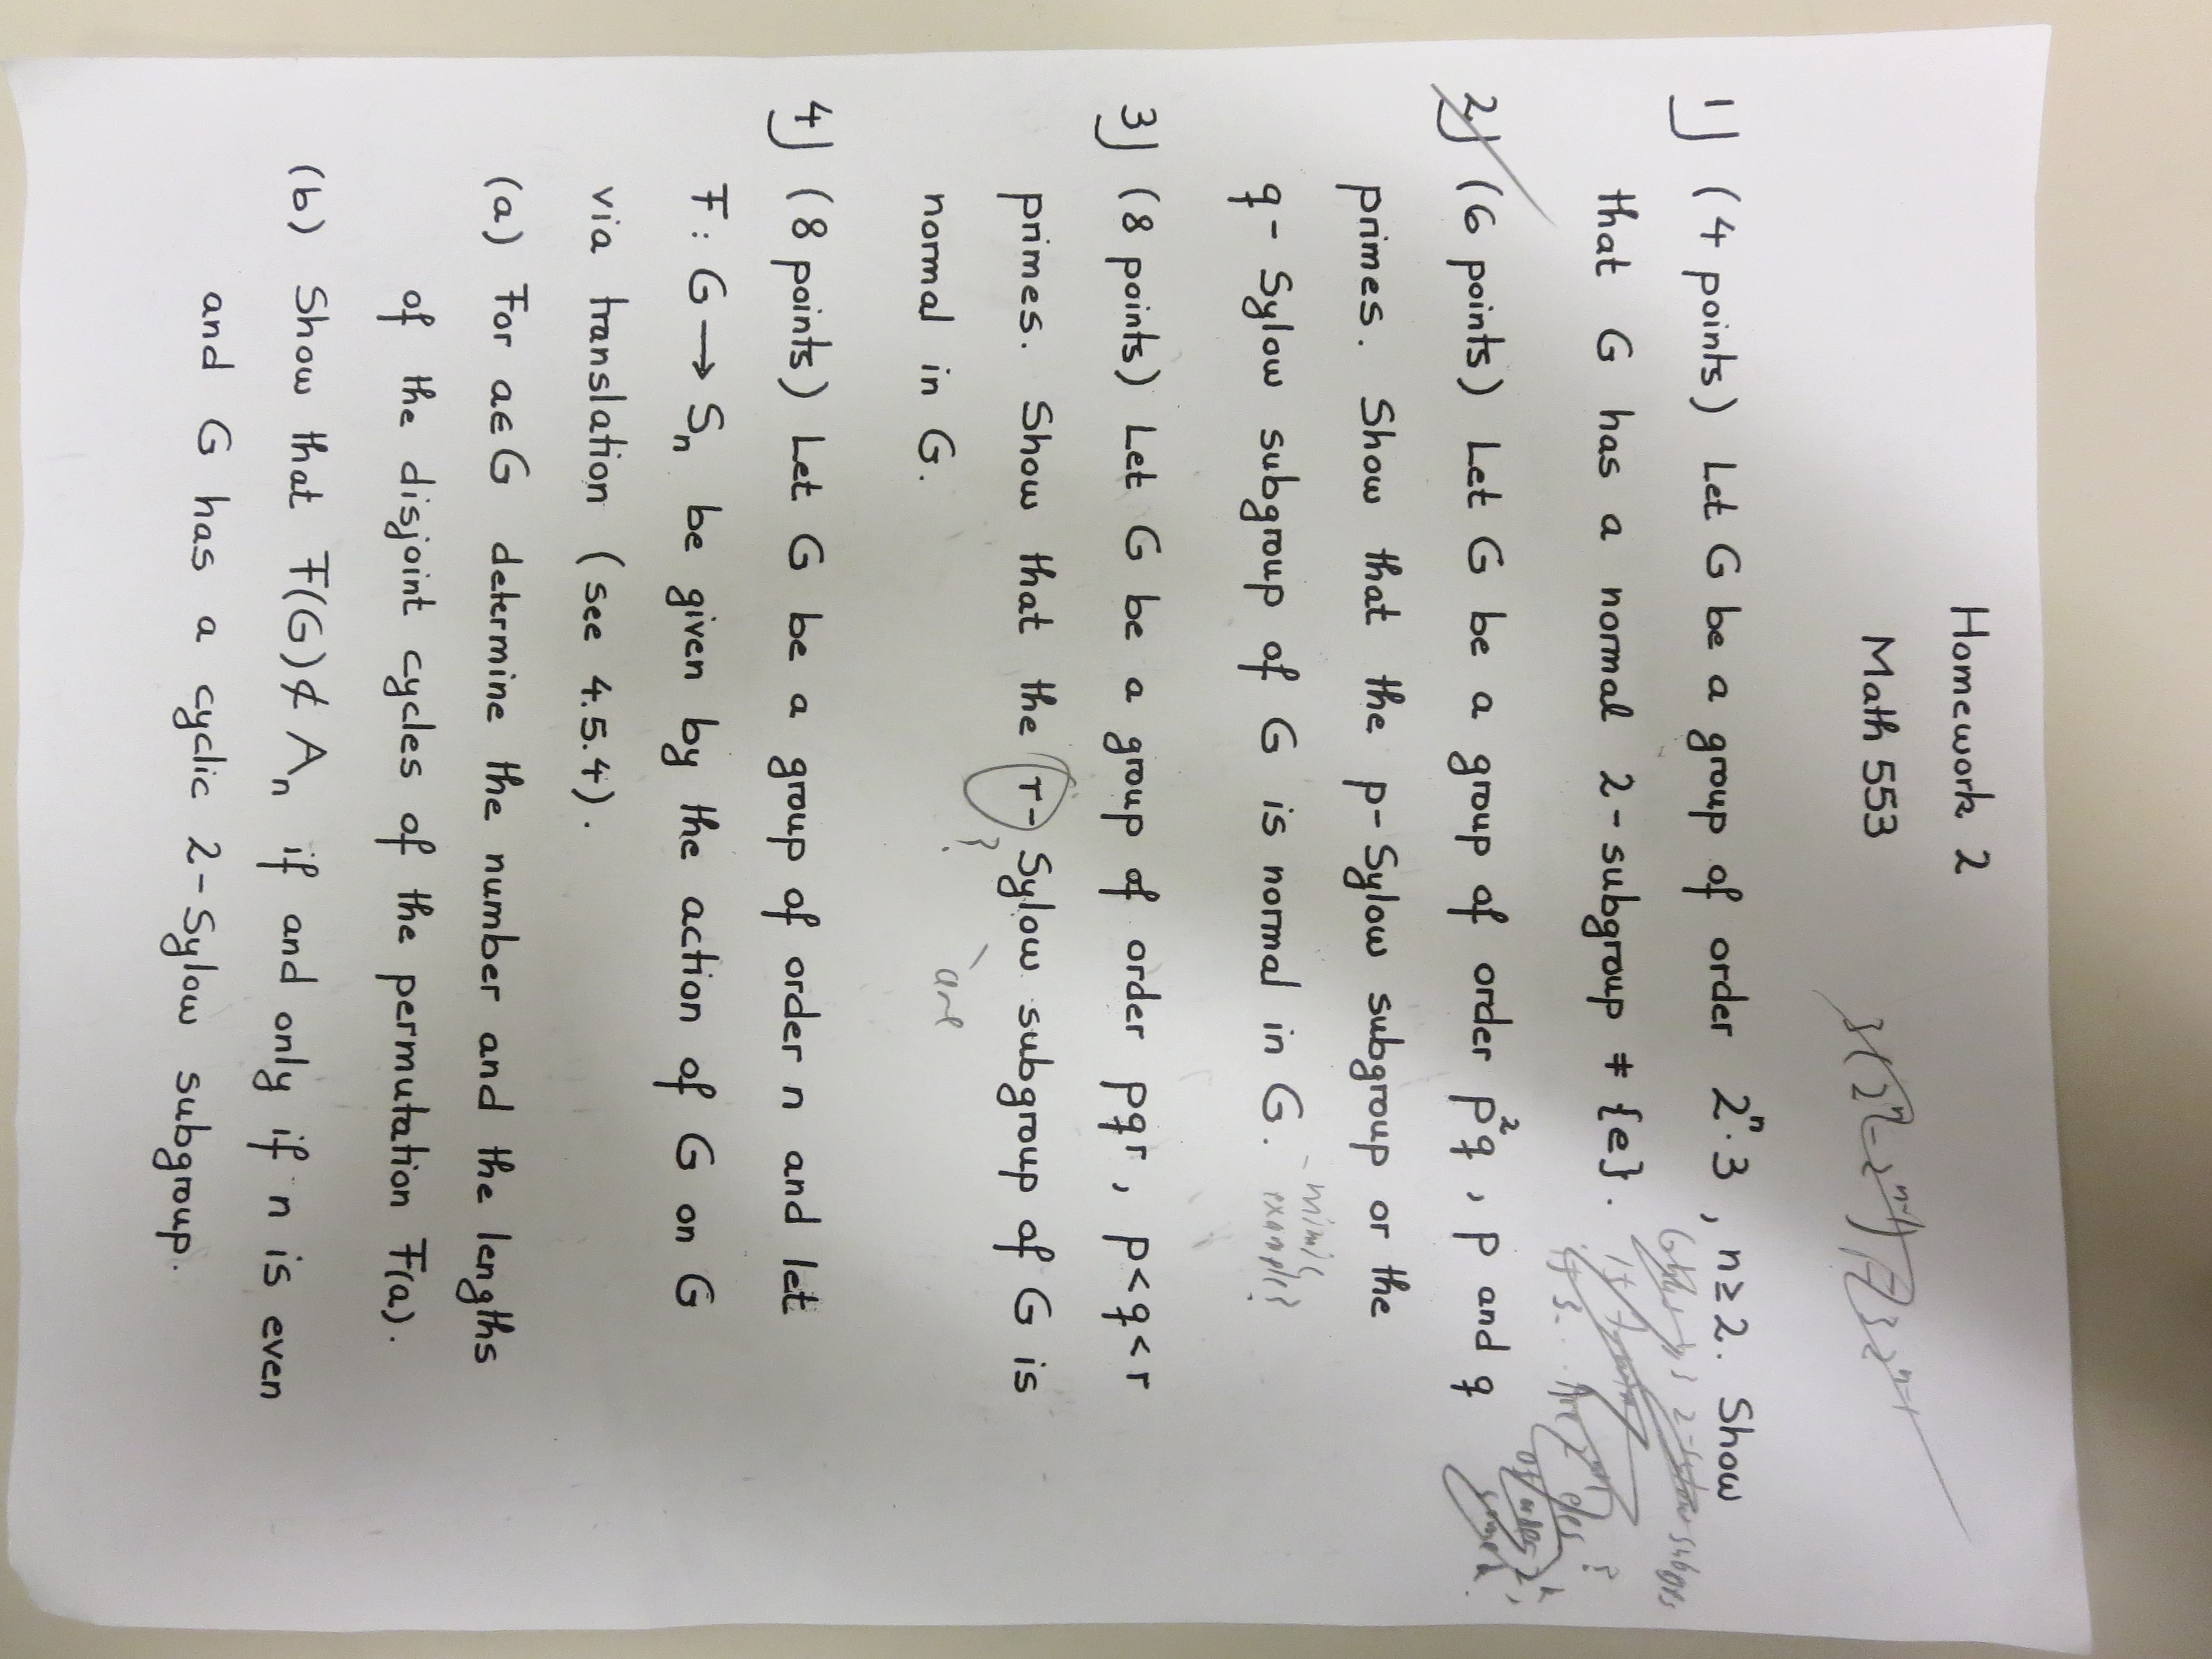 Homework 2
Math 553
1) (4 points) Let G be a group of order 2ⁿ·3, n≥2. Show
that G has a normal 2-subgroup ≠ {e}.
2) (6 points) Let G be a group of order p²q, p and q
primes. Show that the p-Sylow subgroup or the
q-Sylow subgroup of G is normal in G.
- mimic
example?
3) (8 points) Let G be a group of order pqr, p<q<r
primes. Show that the r-Sylow subgroup of G is
normal in G.
?
are
4) (8 points) Let G be a group of order n and let
F: G → Sₙ be given by the action of G on G
via translation (see 4.5.4).
(a) For a∈G determine the number and the lengths
of the disjoint cycles of the permutation F(a).
(b) Show that F(G) ⊄ Aₙ if and only if n is even
and G has a cyclic 2-Sylow subgroup.